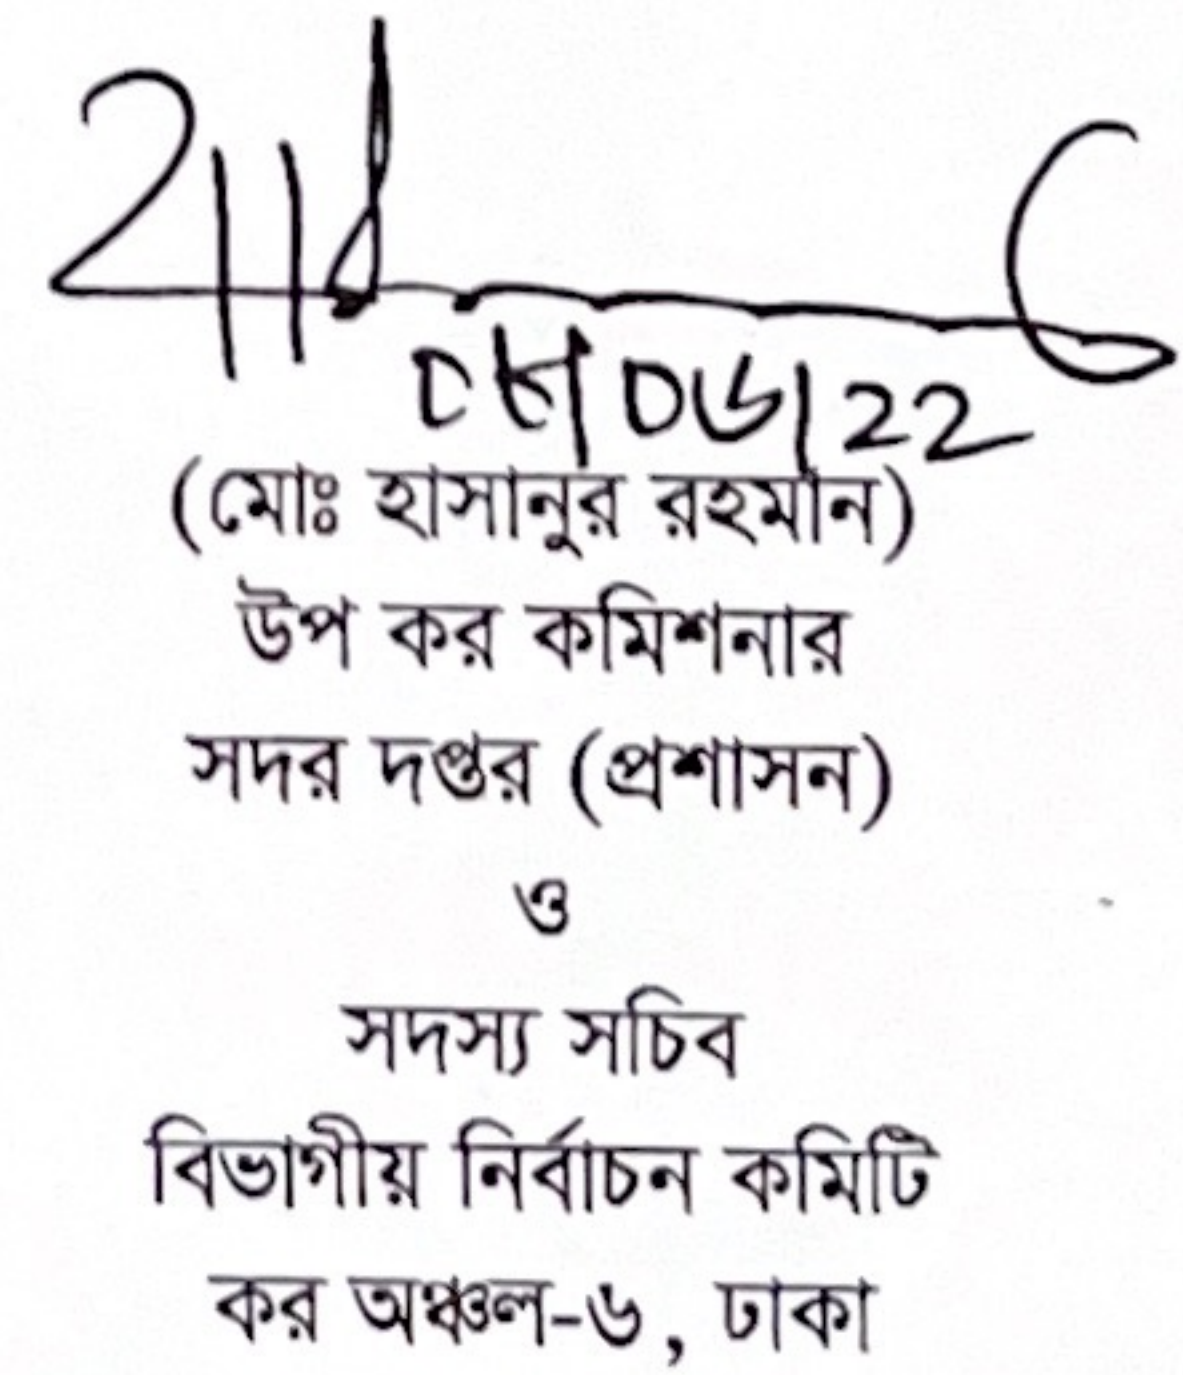 (মোঃ হাসানুর রহমান)
উপ কর কমিশনার
সদর দপ্তর (প্রশাসন)
ও
সদস্য সচিব
বিভাগীয় নির্বাচন কমিটি
কর অঞ্চল-৬, ঢাকা